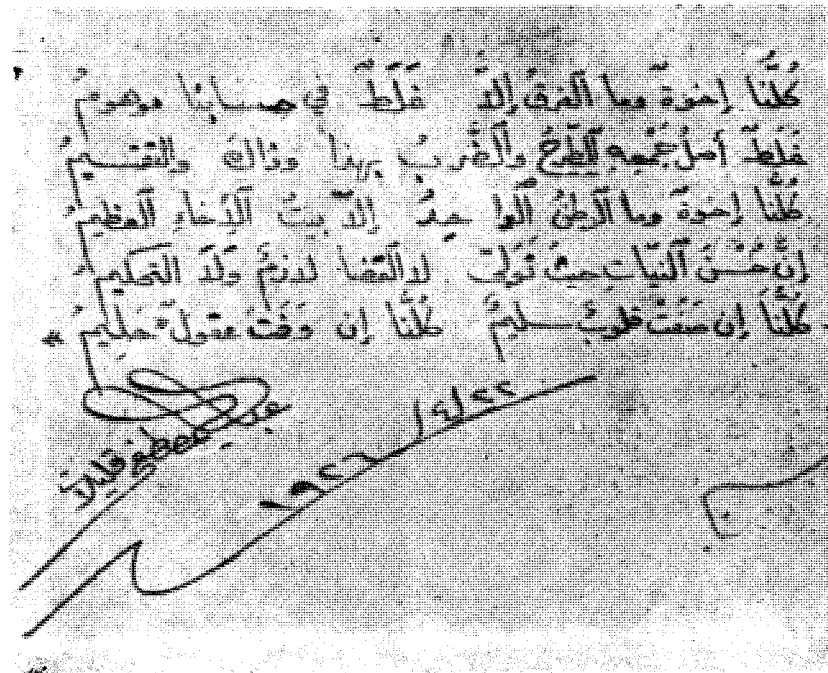 كُلُّنا إخوةٌ وما الفرقُ إلّا غَلَطٌ في حسابنا موهومُ
غَلَطٌ أصلُ جَمْعِهِ الطَّرْحُ والضَّربُ بهذا وذاك والتقسيمُ
كُلُّنا إخوةٌ وما الوطنُ الواحدُ إلّا بيتُ الإخاءِ العظيمُ
إنَّ حُسْنَ النيّاتِ حيثُ تَولّى لا القضا لازمٌ ولا التحكيمُ
كُلُّنا إن صَفَتْ قلوبٌ سليمٌ كُلُّنا إن وَفَتْ عقولٌ حَليمُ
قليلات
١٩٢٦/٤/٢٢